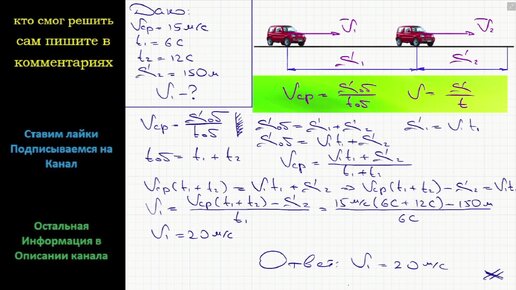 кто смог решить
сам пишите в
комментариях
Ставим лайки
Подписываемся на
Канал
Остальная
Информация в
Описании канала
Дано:
Vср = 15 м/с
t₁ = 6с
t₂ = 12с
S₂ = 150м
V₁ - ?
V₁ V₂
S₁ S₂
Vср = Sоб/tоб V = S/t
Vср = Sоб/tоб Sоб = S₁ + S₂ S₁ = V₁t₁
Sоб = V₁t₁ + S₂
tоб = t₁ + t₂ Vср = (V₁t₁ + S₂)/(t₁ + t₂)
Vср(t₁ + t₂) = V₁t₁ + S₂ ⇒ Vср(t₁ + t₂) - S₂ = V₁t
V₁ = (Vср(t₁ + t₂) - S₂)/t₁ = (15 м/с (6с + 12с) - 150м)/6с
V₁ = 20 м/с
Ответ: V₁ = 20 м/с